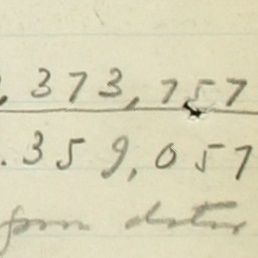 , 373, 757
.359,057
from